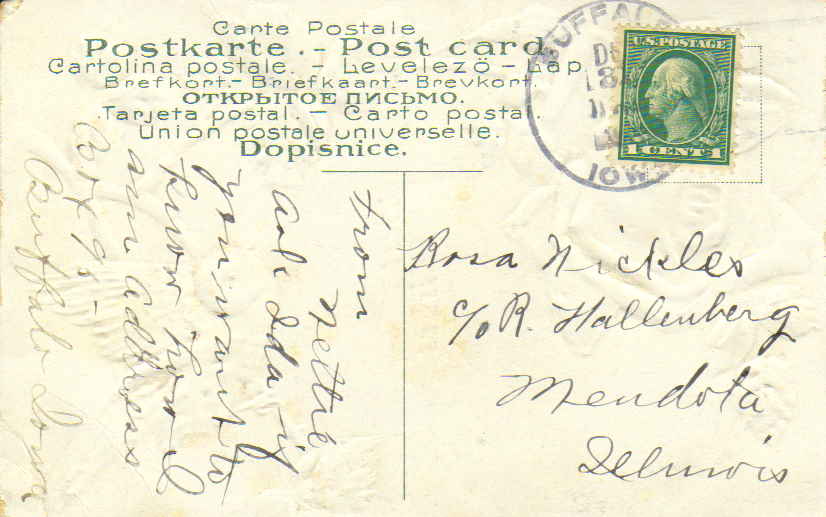 Carte Postale
Postkarte. - Post card.
Cartolina postale. - Levelezö - Lap
Brefkort. - Briefkaart. - Brevkort.
ОТКРЫТОЕ ПИСЬМО.
Tarjeta postal. - Carto postal.
Union postale universelle.
Dopisnice.
BUFFALO
IOWA
U.S. POSTAGE
1 CENT 1
Rosa Nickles
c/o R. Hallenberg
Mendota
Illinois
From
Nettie
Ask Ida if
you want to
know how I
am address
Box 95
Buffalo Iowa